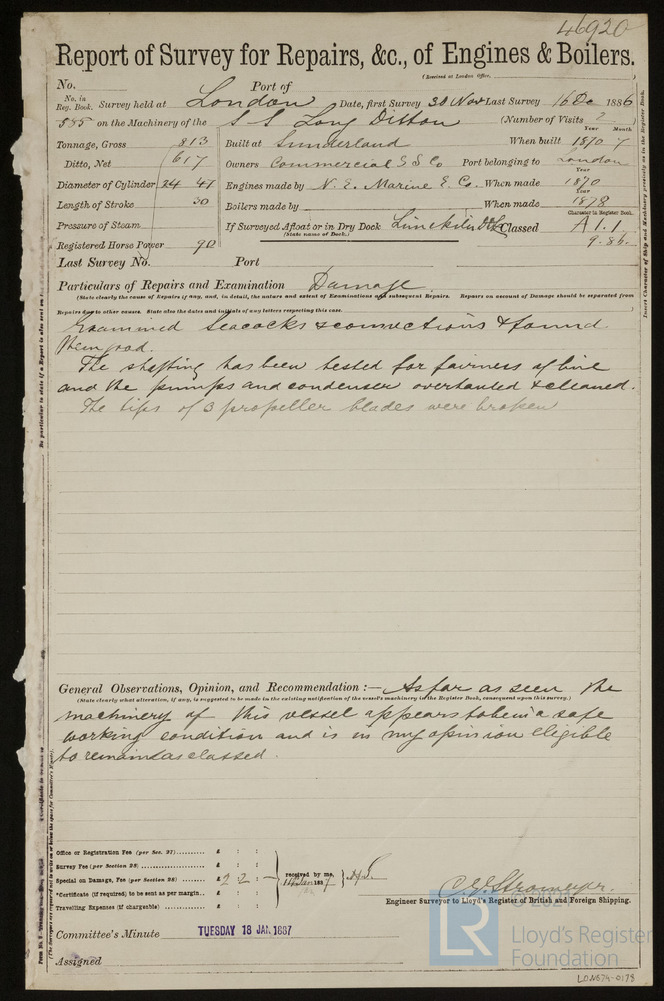 46920
Report of Survey for Repairs, &c., of Engines & Boilers.
(Received at London Office, )
No. Port of
No. in Reg. Book. Survey held at London Date, first Survey 30 Nov Last Survey 16 De 1886
585 on the Machinery of the S S Long Ditton (Number of Visits 2
Year Month
Tonnage, Gross 813 Built at Sunderland When built 1870 7
Ditto, Net 617 Owners Commercial S S Co Port belonging to London
Year
Diameter of Cylinder 24 47 Engines made by N. E. Marine E. Co. When made 1870
Year
Length of Stroke 30 Boilers made by When made 1878
Character in Register Book.
Pressure of Steam If Surveyed Afloat or in Dry Dock Classed A 1. 1
(State name of Dock.)
Registered Horse Power 90 9. 86.
Last Survey No. Port
Particulars of Repairs and Examination Damage.
(State clearly the cause of Repairs if any, and, in detail, the nature and extent of Examinations and subsequent Repairs. Repairs on account of Damage should be separated from
Repairs due to other causes. State also the dates and initials of any letters respecting this case. )
Examined Seacocks & connections & found
them good.
The shafting has been tested for fairness of line
and the pumps and condenser overhauled & cleaned.
The tips of 3 propeller blades were broken
General Observations, Opinion, and Recommendation :— As far as seen the
(State clearly what alteration, if any, is suggested to be made in the existing notification of the vessel's machinery in the Register Book, consequent upon this survey.)
machinery of this vessel appears to be in a safe
working condition and is in my opinion eligible
to remain as classed.
Office or Registration Fee (per Sec. 27) £ : :
Survey Fee (per Section 28) £ : :
Special on Damage, Fee (per Section 28) £ 2 2 : — received by me, 14 Jan 1887
*Certificate (if required) to be sent as per margin. £ : :
Travelling Expenses (if chargeable) £ : :
C. E. Stromeyer.
Engineer Surveyor to Lloyd's Register of British and Foreign Shipping.
Committee's Minute TUESDAY 18 JAN. 1887
Assigned
© 2021
LR
Lloyd's Register
Foundation
LON674-0178
Insert Character of Ship and Machinery precisely as in the Register Book.